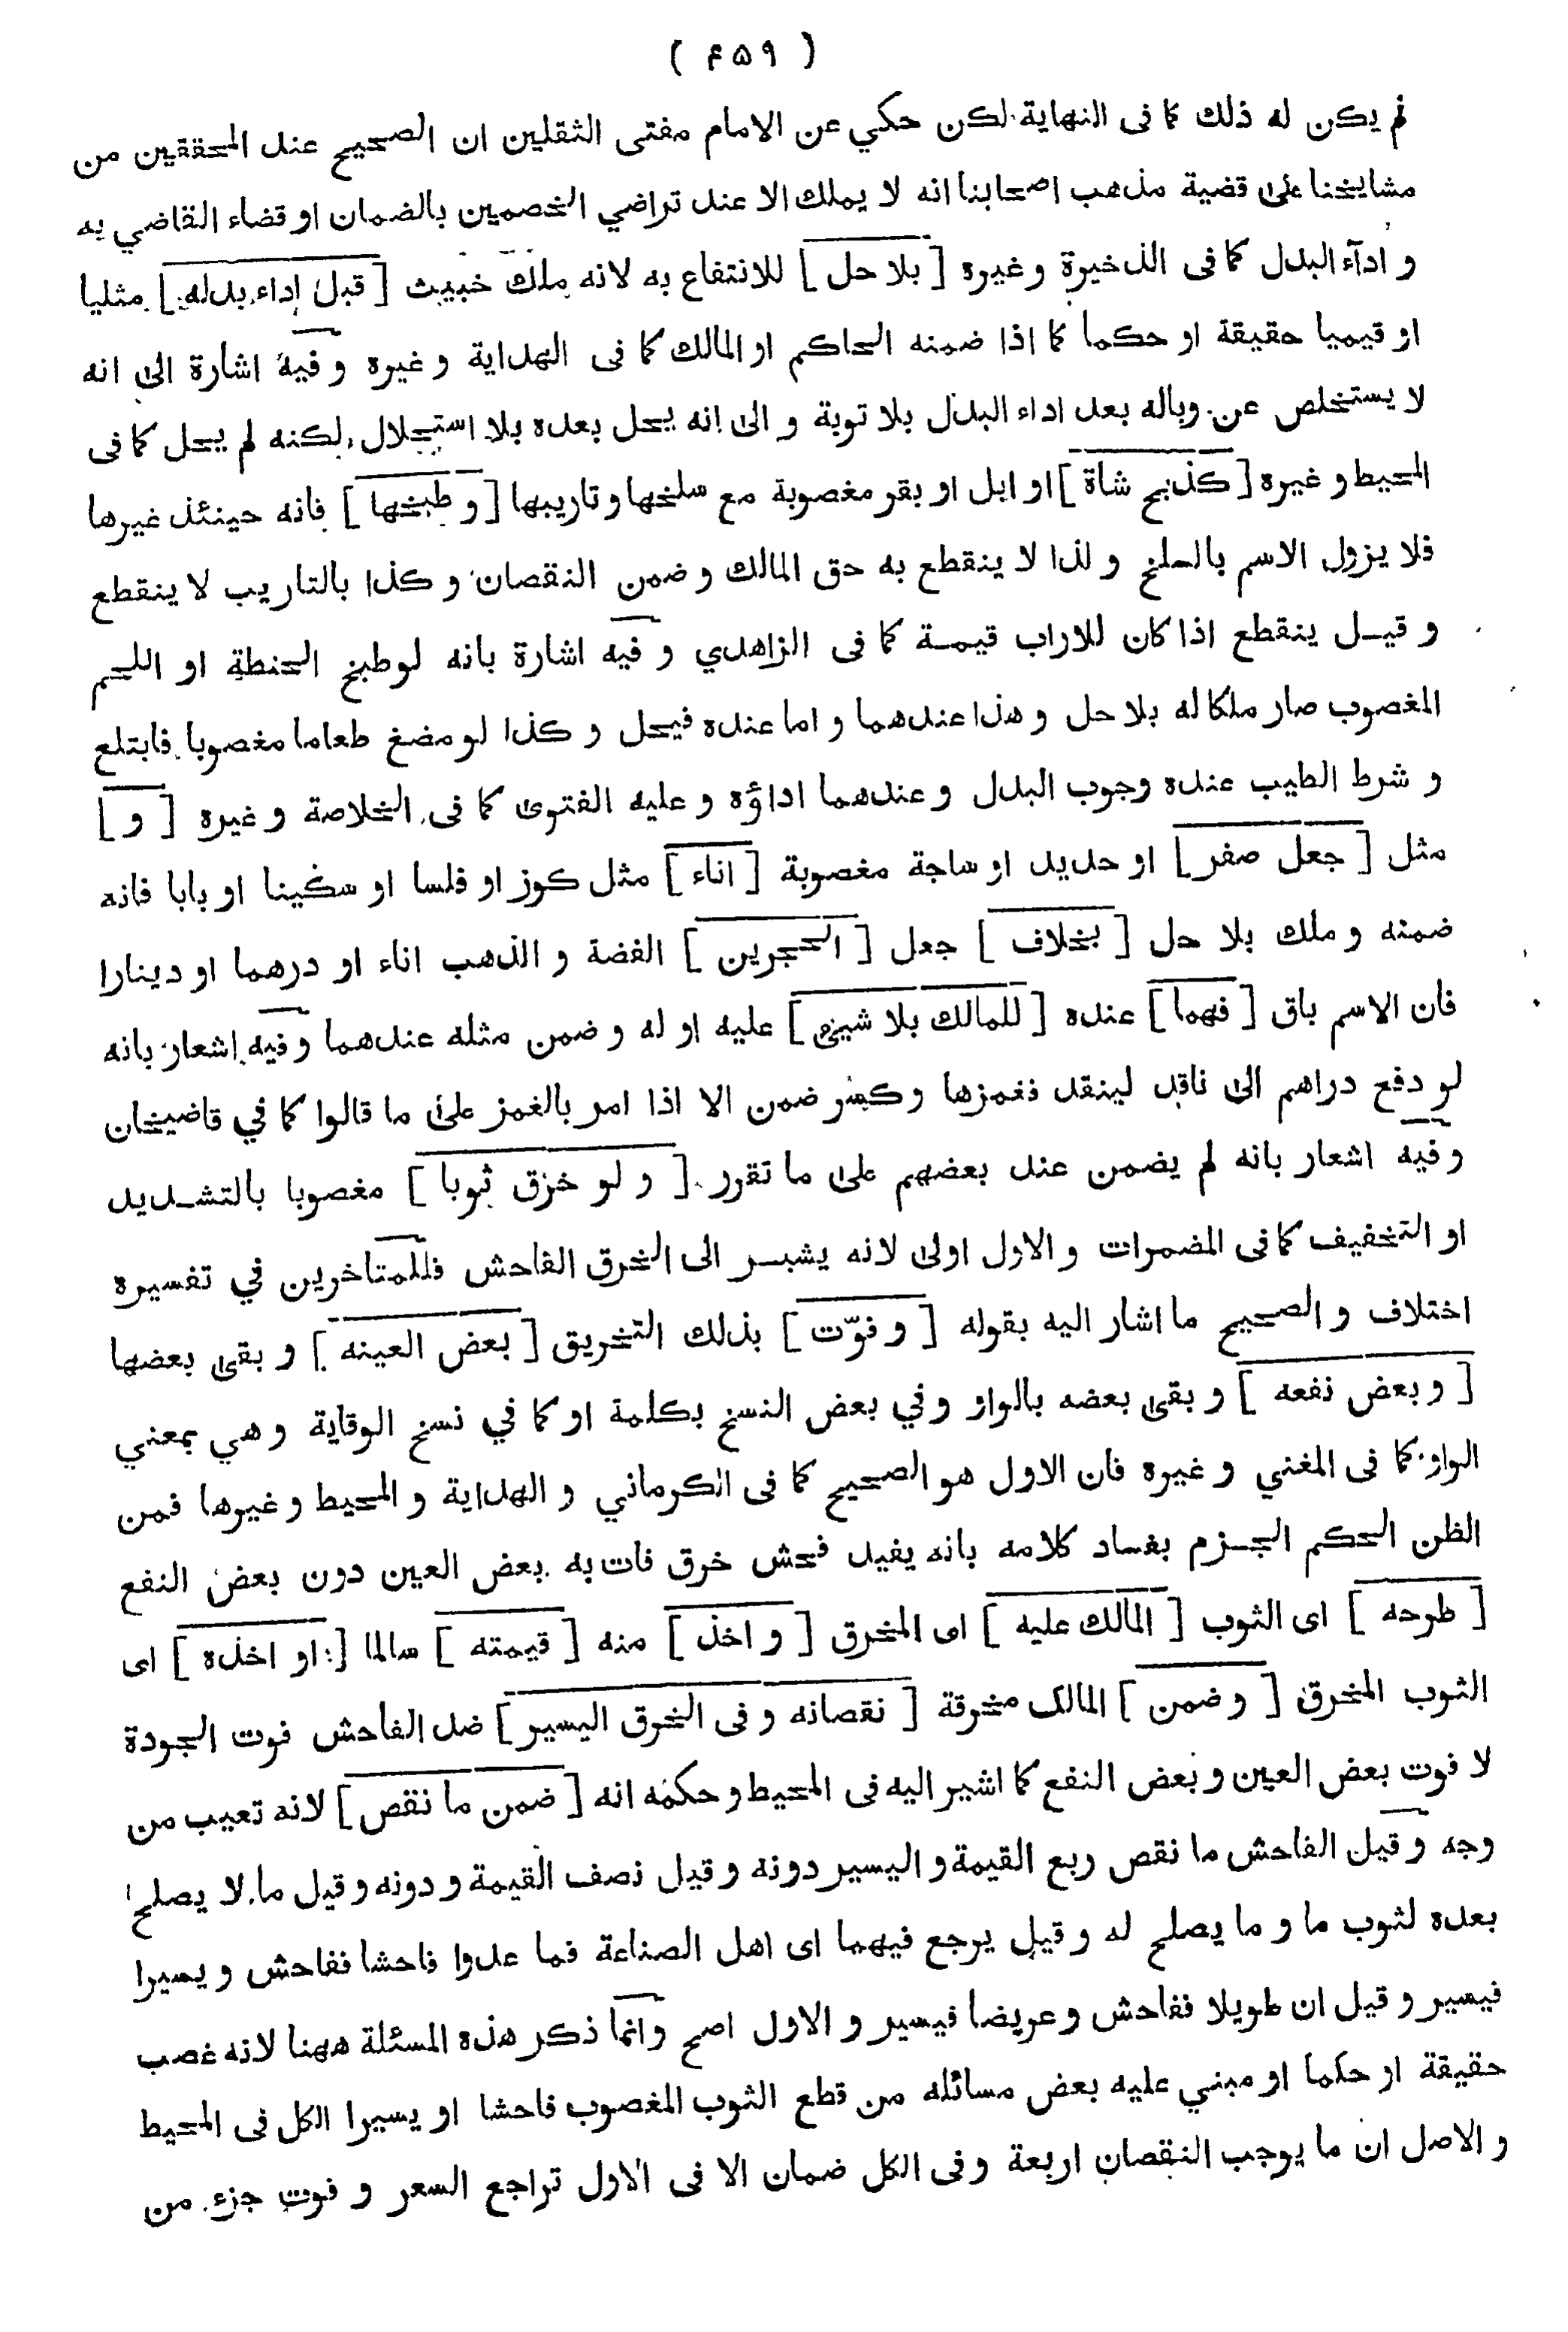 ( ۴۵۹ )
لم يكن له ذلك كما فى النهاية لكن حكي عن الامام مفتى الثقلين ان الصحيح عند المحققين من
مشايخنا على قضية مذهب اصحابنا انه لا يملك الا عند تراضي الخصمين بالضمان او قضاء القاضي به
و ادآء البدل كما فى الذخيرة و غيره [ بلا حل ] للانتفاع به لانه ملك خبيث [ قبل اداء بدله ] مثليا
او قيميا حقيقة او حكما كما اذا ضمنه الحاكم او المالك كما فى الهداية و غيره و فيه اشارة الى انه
لا يستخلص عن وباله بعد اداء البدل بلا توبة و الى انه يحل بعده بلا استحلال لكنه لم يحل كما فى
المحيط و غيره [ كذبح شاة ] او ابل او بقر مغصوبة مع سلخها و تاريبها [ و طبخها ] فانه حينئذ غيرها
فلا يزول الاسم بالسلخ و لذا لا ينقطع به حق المالك و ضمن النقصان و كذا بالتاريب لا ينقطع
و قيل ينقطع اذا كان للاراب قيمة كما فى الزاهدي و فيه اشارة بانه لو طبخ الحنطة او اللحم
المغصوب صار ملكا له بلا حل و هذا عندهما و اما عنده فيحل و كذا لو مضغ طعاما مغصوبا فابتلع
و شرط الطيب عنده وجوب البدل و عندهما اداؤه و عليه الفتوى كما فى الخلاصة و غيره [ و ]
مثل [ جعل صفر ] او حديد او ساجة مغصوبة [ اناء ] مثل كوز او فلسا او سكينا او بابا فانه
ضمنه و ملك بلا حل [ بخلاف ] جعل [ الحجرين ] الفضة و الذهب اناء او درهما او دينارا
فان الاسم باق [ فهما ] عنده [ للمالك بلا شيئ ] عليه او له و ضمن مثله عندهما و فيه اشعار بانه
لو دفع دراهم الى ناقد لينقد فغمزها و كسر ضمن الا اذا امر بالغمز على ما قالوا كما في قاضيخان
و فيه اشعار بانه لم يضمن عند بعضهم على ما تقرر [ و لو خرق ثوبا ] مغصوبا بالتشديد
او التخفيف كما فى المضمرات و الاول اولى لانه يشير الى الخرق الفاحش فللمتاخرين في تفسيره
اختلاف و الصحيح ما اشار اليه بقوله [ و فوّت ] بذلك التخريق [ بعض العينه ] و بقى بعضها
[ و بعض نفعه ] و بقى بعضه بالواو و في بعض النسخ بكلمة او كما في نسخ الوقاية و هي بمعني
الواو كما فى المغني و غيره فان الاول هو الصحيح كما فى الكرماني و الهداية و المحيط و غيرها فمن
الظن الحكم الجزم بفساد كلامه بانه يفيد فحش خرق فات به بعض العين دون بعض النفع
[ طرحه ] اى الثوب [ المالك عليه ] اى المخرق [ و اخذ ] منه [ قيمته ] سالما [ او اخذه ] اى
الثوب المخرق [ و ضمن ] المالك مخرقة [ نقصانه و فى الخرق اليسير ] ضد الفاحش فوت الجودة
لا فوت بعض العين و بعض النفع كما اشير اليه فى المحيط و حكمه انه [ ضمن ما نقص ] لانه تعيب من
وجه و قيل الفاحش ما نقص ربع القيمة و اليسير دونه و قيل نصف القيمة و دونه و قيل ما لا يصلح
بعده لثوب ما و ما يصلح له و قيل يرجع فيهما اى اهل الصناعة فما عدوا فاحشا ففاحش و يسيرا
فيسير و قيل ان طويلا ففاحش و عريضا فيسير و الاول اصح و انما ذكر هذه المسئلة ههنا لانه غصب
حقيقة او حكما او مبني عليه بعض مسائله من قطع الثوب المغصوب فاحشا او يسيرا الكل فى المحيط
و الاصل ان ما يوجب النقصان اربعة و فى الكل ضمان الا فى الاول تراجع السعر و فوت جزء من